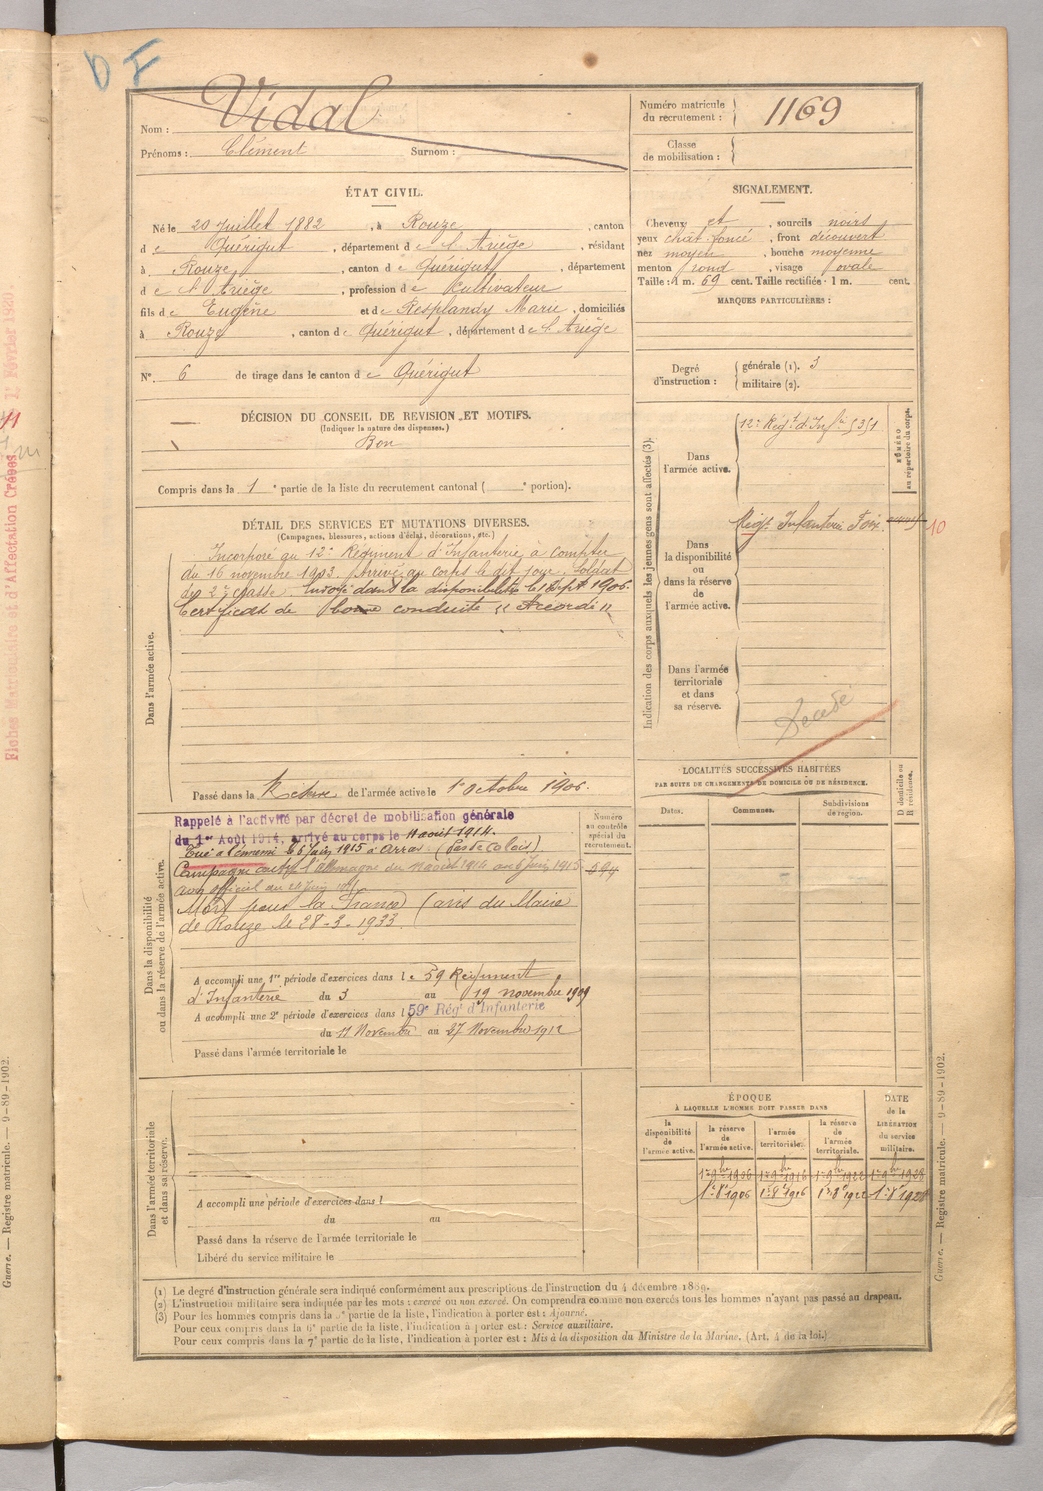 D F
Vidal
Nom :
Prénoms : Clément Surnom :
Numéro matricule du recrutement : 1169
Classe de mobilisation :
ÉTAT CIVIL.
Né le 20 Juillet 1882, à Rouze, canton
de Quérigut, département de l'Ariège, résidant
à Rouze, canton de Quérigut, département
de l'Ariège, profession de Cultivateur
fils de Eugène et de Resplandy Marie, domiciliés
à Rouze, canton de Quérigut, département de l'Ariège
N° 6 de tirage dans le canton de Quérigut
SIGNALEMENT.
Cheveux et, sourcils noirs
yeux chât foncé, front découvert
nez moyen, bouche moyenne
menton rond, visage ovale
Taille : 1 m. 69 cent. Taille rectifiée : 1 m. cent.
MARQUES PARTICULIÈRES :
Degré d'instruction : générale (1). 3
militaire (2).
DÉCISION DU CONSEIL DE REVISION ET MOTIFS.
(Indiquer la nature des dispenses.)
Bon
Compris dans la 1e partie de la liste du recrutement cantonal ( e portion).
DÉTAIL DES SERVICES ET MUTATIONS DIVERSES.
(Campagnes, blessures, actions d'éclat, décorations, etc.)
Dans l'armée active.
Incorporé au 12e Régiment d'Infanterie à compter
du 16 novembre 1903. Arrivé au corps le dit jour. Soldat
de 2e classe. Envoyé dans la disponibilité le Sept 1906.
Certificat de bonne conduite " Accordé "
Passé dans la Réserve de l'armée active le 1 Octobre 1906.
Indication des corps auxquels les jeunes gens sont affectés (3).
Dans l'armée active.
12e Régt d'Infie
NUMÉRO au répertoire du corps.
Dans la disponibilité ou dans la réserve de l'armée active.
Régt Infanterie Foix
10
Dans l'armée territoriale et dans sa réserve.
Décédé
LOCALITÉS SUCCESSIVES HABITÉES
PAR SUITE DE CHANGEMENTS DE DOMICILE OU DE RÉSIDENCE.
Dates. Communes. Subdivisions de région. D domicile ou R résidence.
Dans la disponibilité ou dans la réserve de l'armée active.
Rappelé à l'activité par décret de mobilisation générale
du 1er Août 1914, arrivé au corps le 11 août 1914.
Tué à l'ennemi le 6 juin 1915 à Arras (Pas de Calais)
Campagne contre l'Allemagne du 11 août 1914 au 6 juin 1915
avis officiel du 29 juin
Mort pour la France (avis du Maire
de Rouze le 28-3-1933.
Numéro au contrôle spécial du recrutement.
594
A accompli une 1re période d'exercices dans le 59 Régiment
d'Infanterie du 3 au 19 novembre 1909
A accompli une 2e période d'exercices dans l 59e Régt d'Infanterie
du 11 Novembre au 27 Novembre 1912
Passé dans l'armée territoriale le
Dans l'armée territoriale et dans sa réserve.
A accompli une période d'exercices dans l
du au
Passé dans la réserve de l'armée territoriale le
Libéré du service militaire le
ÉPOQUE
À LAQUELLE L'HOMME DOIT PASSER DANS
DATE de la LIBÉRATION du service militaire.
la disponibilité de l'armée active. la réserve de l'armée active. l'armée territoriale. la réserve de l'armée territoriale.
1er 9bre 1906 1er 9bre 1916 1er 9bre 1922 1er 9bre 1928
(1) Le degré d'instruction générale sera indiqué conformément aux prescriptions de l'instruction du 4 décembre 1889.
(2) L'instruction militaire sera indiquée par les mots : exercé ou non exercé. On comprendra comme non exercés tous les hommes n'ayant pas passé au drapeau.
(3) Pour les hommes compris dans la 5e partie de la liste, l'indication à porter est : Ajourné.
Pour ceux compris dans la 6e partie de la liste, l'indication à porter est : Service auxiliaire.
Pour ceux compris dans la 7e partie de la liste, l'indication à porter est : Mis à la disposition du Ministre de la Marine. (Art. 4 de la loi.)
Guerre. — Registre matricule. — 9-89-1902.
Guerre. — Registre matricule. — 9-89-1902.